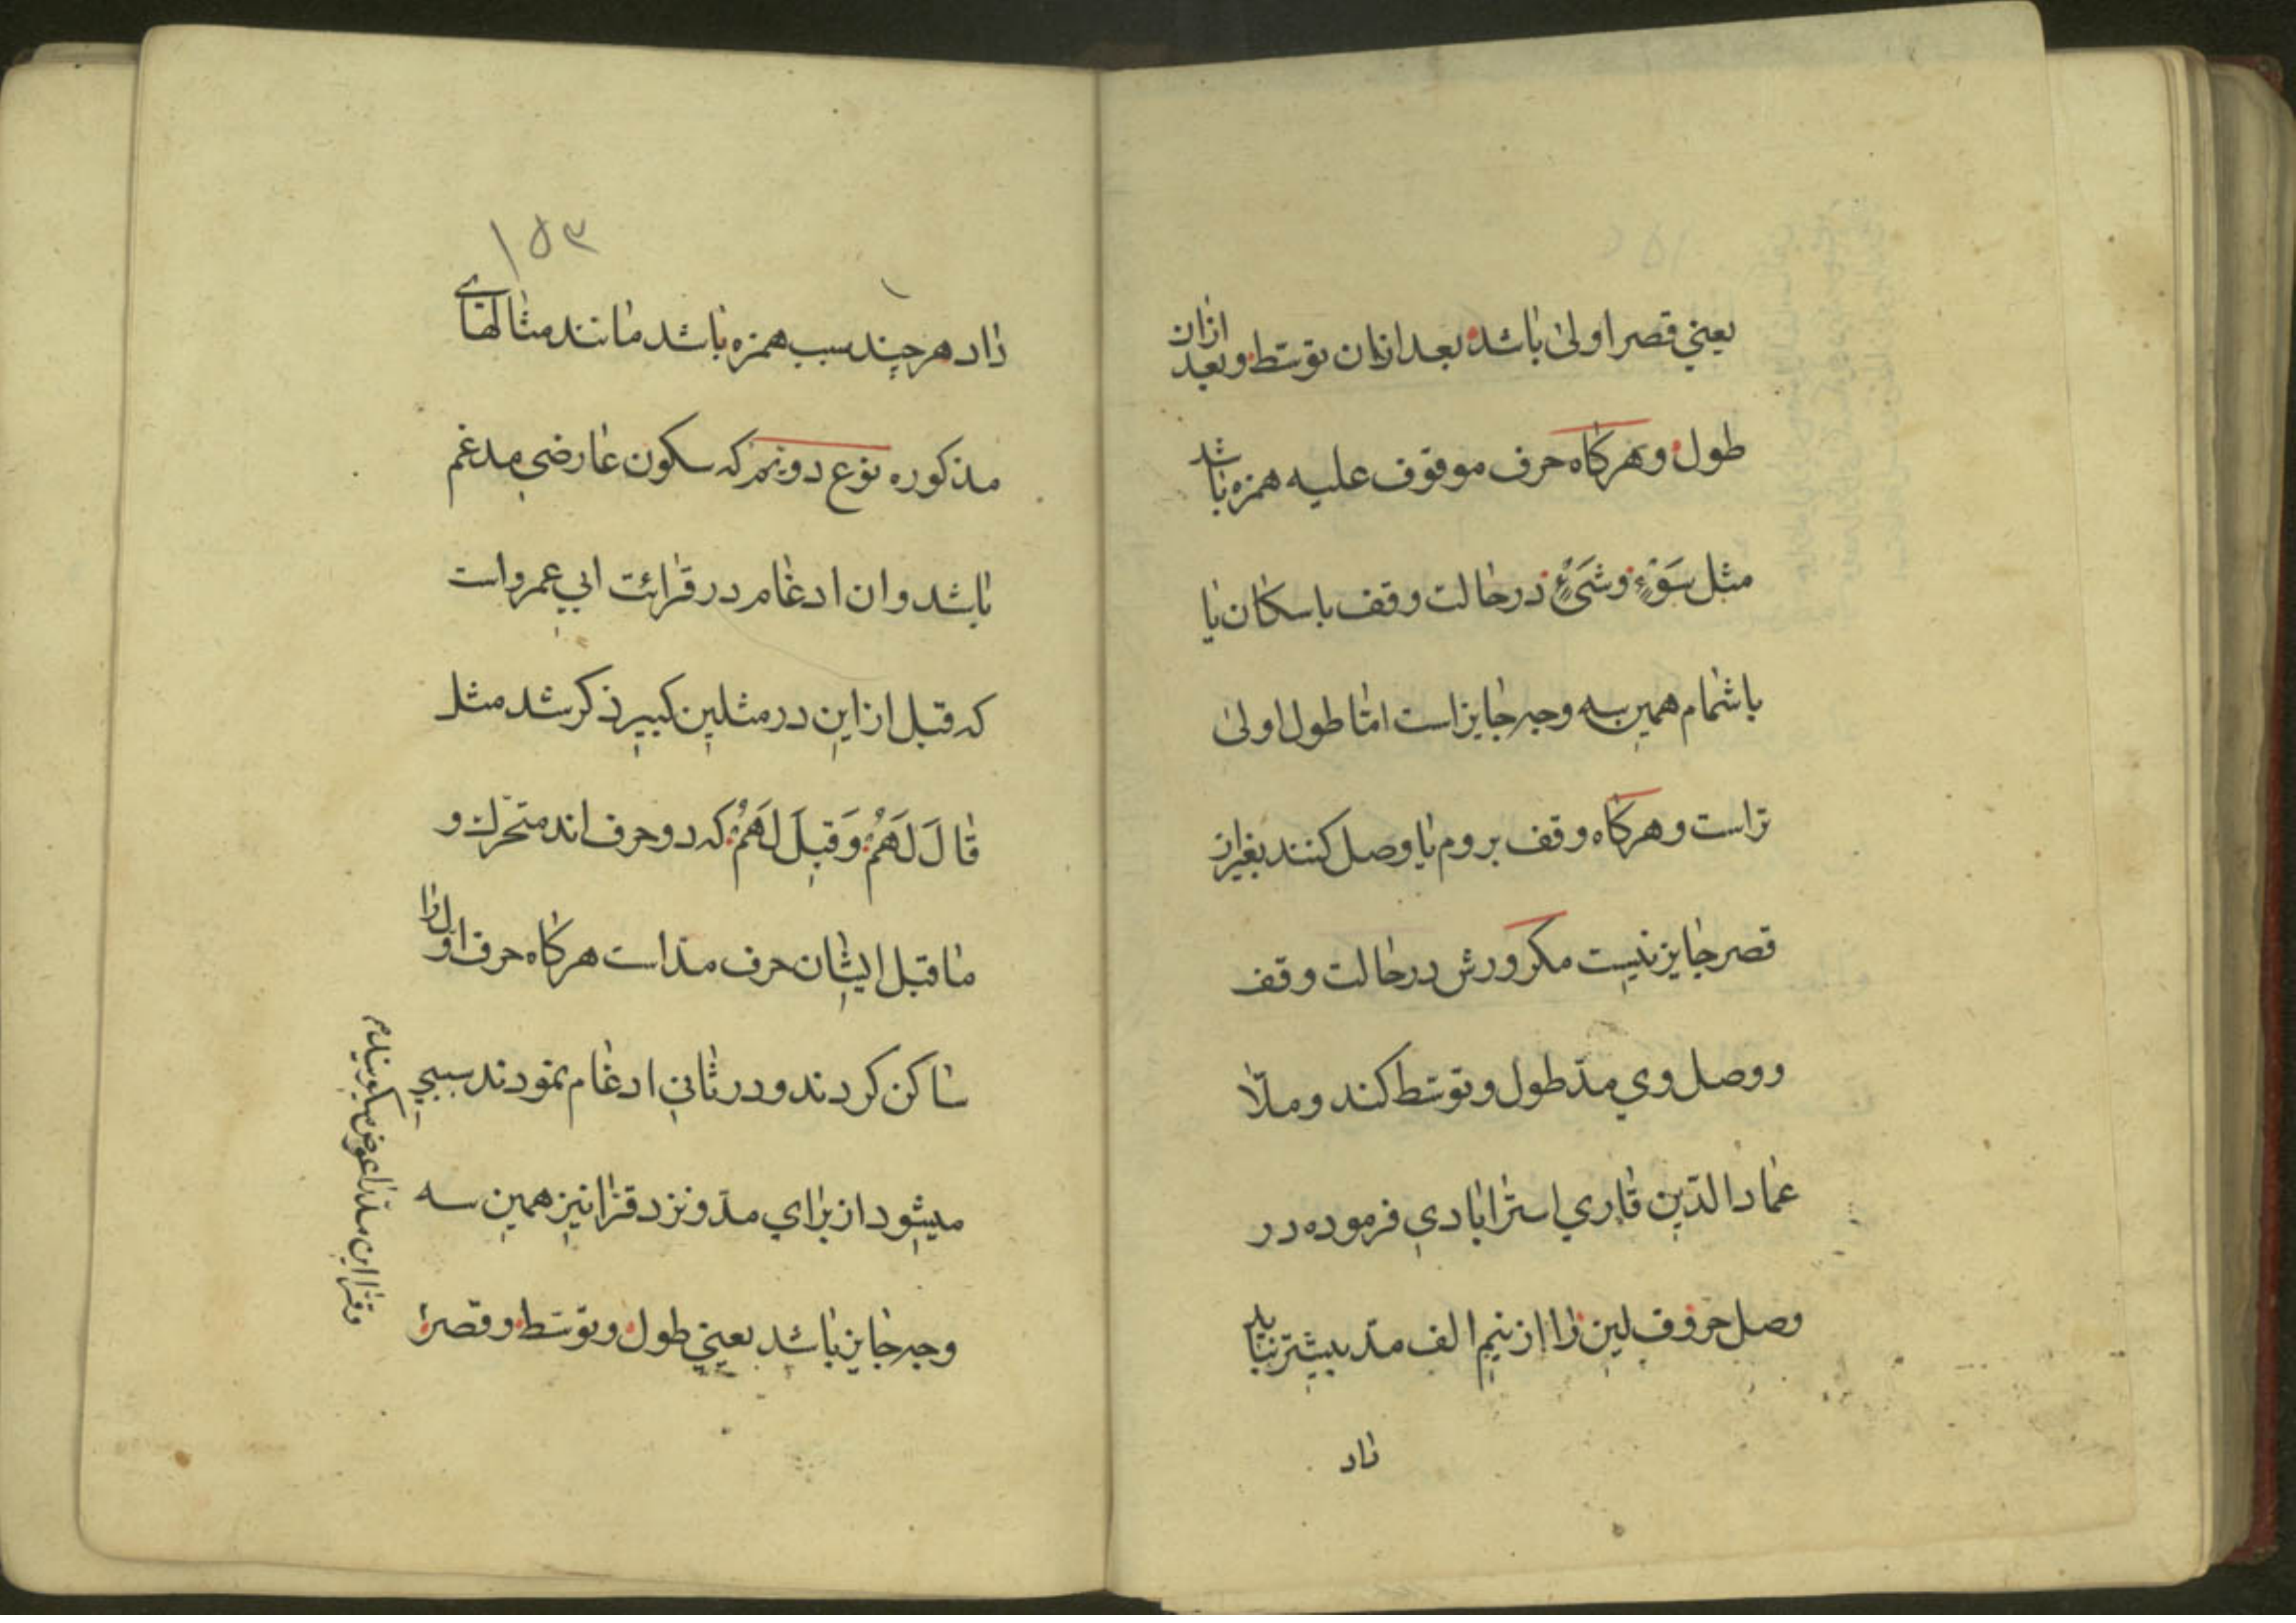 يعني قصر اولى باشد بعد ازان توسّط و بعد ازان
طول و هركاه حرف موقوف عليه همزه باشد
مثل سَوْءٍ و شَىْءٍ در حالت وقف باسكان يا
باشمام همين سه وجه جايز است امّا طول اولى
تر است و هركاه وقف بروم يا وصل كنند بغير از
قصر جايز نيست مكر ورش در حالت وقف
و وصل وي مدّ طول و توسّط كند و ملّا
عماد الدّين قاري استرابادي فرموده در
وصل حروف لين را از نيم الف مدّ بيشتر نبايد
داد
۱۵۳
داد هر چند سبب همزه باشد مانند مثالهاى
مذكوره نوع دويم كه سكون عارضي مدغم
باشد و ان ادغام در قرائت ابي عمرو است
كه قبل از اين در مثلين كبير ذكر شد مثل
قالَ لَهُمُ وَقِيلَ لَهُمُ كه دو حرف اند متحرّك و
ما قبل ايشان حرف مدّ است هركاه حرف اوّل را
ساكن كردند و در ثاني ادغام نمودند سببي
ميشود از براي مدّ و نزد قرّا نيز همين سه
وجه جايز باشد يعني طول و توسّط و قصر
و قرّا اين مدّ را عوض سكون